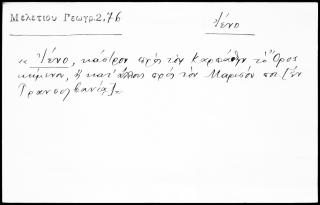 Μελετίου Γεωγρ.2,76
Ἰένο
« Ἰένο, κάστρον πρὸς τὸν Καρπάθην τὸ Ὄρος
κείμενον, ἢ κατ' ἄλλους πρὸς τὸν Μαρισὸν ποτ. [ἐν
Τρανσυλβανίᾳ].»